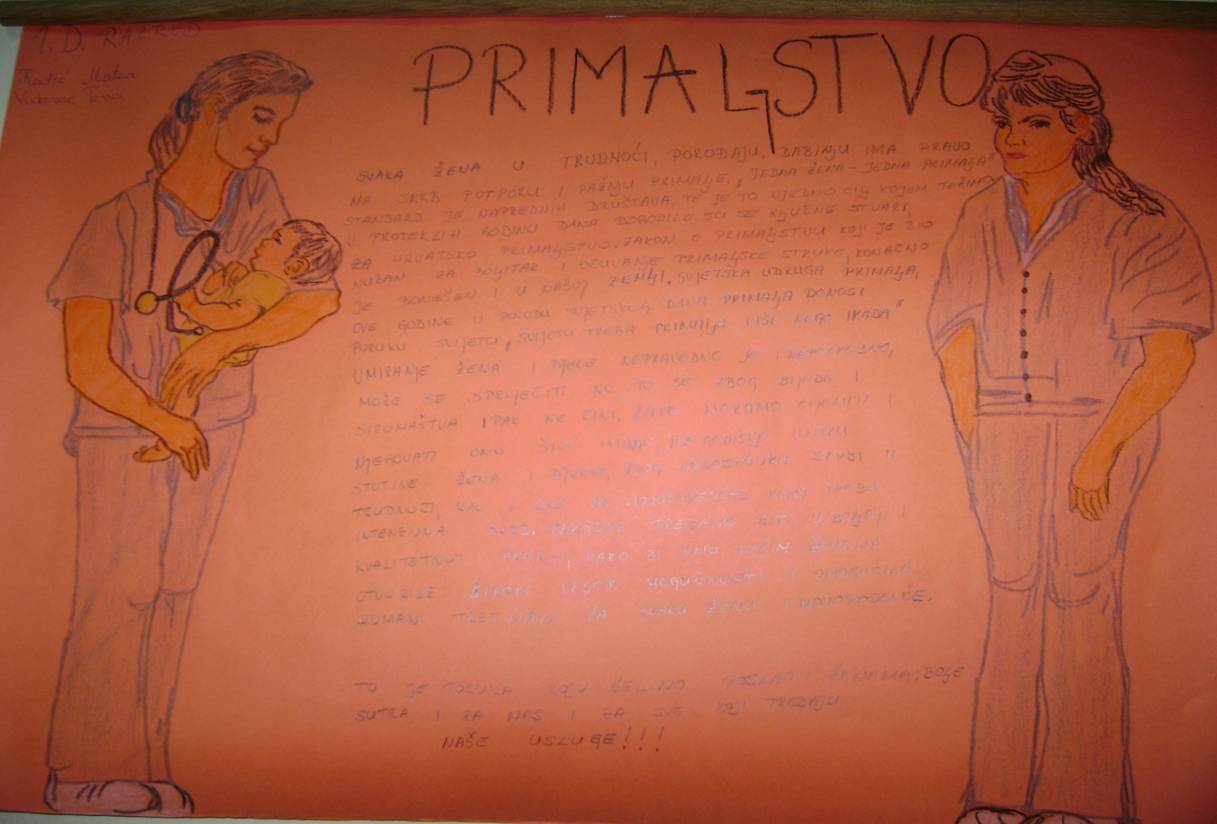 1. D. RAZRED
PRIMALJSTVO
SVAKA ŽENA U TRUDNOĆI, POROĐAJU, BABINJU IMA PRAVO
NA SKRB POTPORU I PAŽNJU PRIMALJE. "JEDNA ŽENA - JEDNA PRIMALJA"
STANDARD JE NAPREDNIH DRUŠTAVA, TE JE TO UJEDNO CILJ KOJEM TEŽIMO
U PROTEKLIH GODINU DANA DOGODILE SU SE KLJUČNE STVARI,
ZA HRVATSKO PRIMALJSTVO. ZAKON O PRIMALJSTVU KOJI JE BIO
NUŽAN ZA BOLJITAK I OČUVANJE PRIMALJSKE STRUKE, KONAČNO
JE DONEŠEN I U NAŠOJ ZEMLJI. SVJETSKA UDRUGA PRIMALJA,
OVE GODINE U POVODU SVJETSKOG DANA PRIMALJA DONOSI
PORUKU SVIJETU "SVIJETU TREBA PRIMALJA VIŠE NEGO IKADA"
UMIRANJE ŽENA I DJECE NEPRAVEDNO JE I NEPOTREBNO,
MOŽE SE SPRIJEČITI NO TO SE ZBOG BIJEDE I
SIROMAŠTVA IPAK NE ČINI. ZATO MORAMO CIJENITI I
NJEGOVATI ONO ŠTO IMAMO,
STOTINE ŽENA I DJECE, SKRBI U
TRUDNOĆI,
INTENZIVNA TREBAMO BITI U BROJU I
KVALITETNOJ KAKO BI SMO SVIM ŽENAMA
OTVORILE ŠIROKI IZBOR MOGUĆNOSTI I OMOGUĆILE
HUMANI ZA SVAKU ŽENU I NOVOROĐENČE.
TO JE PORUKA KOJU ŽELIMO POSLATI ŽENAMA; BOLJE
SUTRA I ZA NAS I ZA SVE KOJI TREBAJU
NAŠE USLUGE!!!